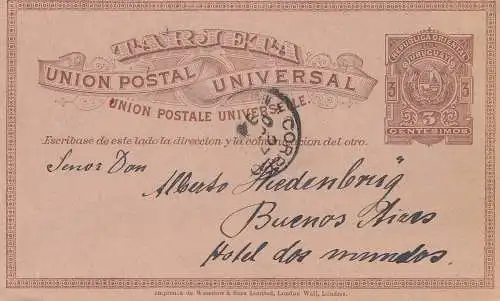 TARJETA
UNION POSTAL UNIVERSAL
UNION POSTALE UNIVERSELLE.
REPUBLICA ORIENTAL
DEL URUGUAY
3 3
3
CENTESIMOS
Escribase de este lado la direccion y la comunicacion del otro.
CORR
Senor Don
Alberto Wiedenbrüg
Buenos Aires
Hotel dos mundos.
Imprenta de Waterlow & Sons Limited, London Wall, Londres.